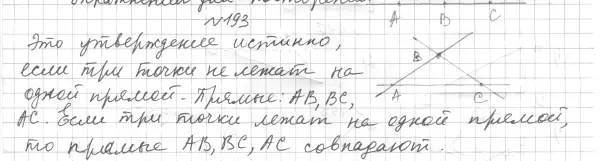 A B C
№193
Это утверждение истинно,
если три точки не лежат на
одной прямой. Прямые: AB, BC,
AC. Если три точки лежат на одной прямой,
то прямые AB, BC, AC совпадают.
B
A C